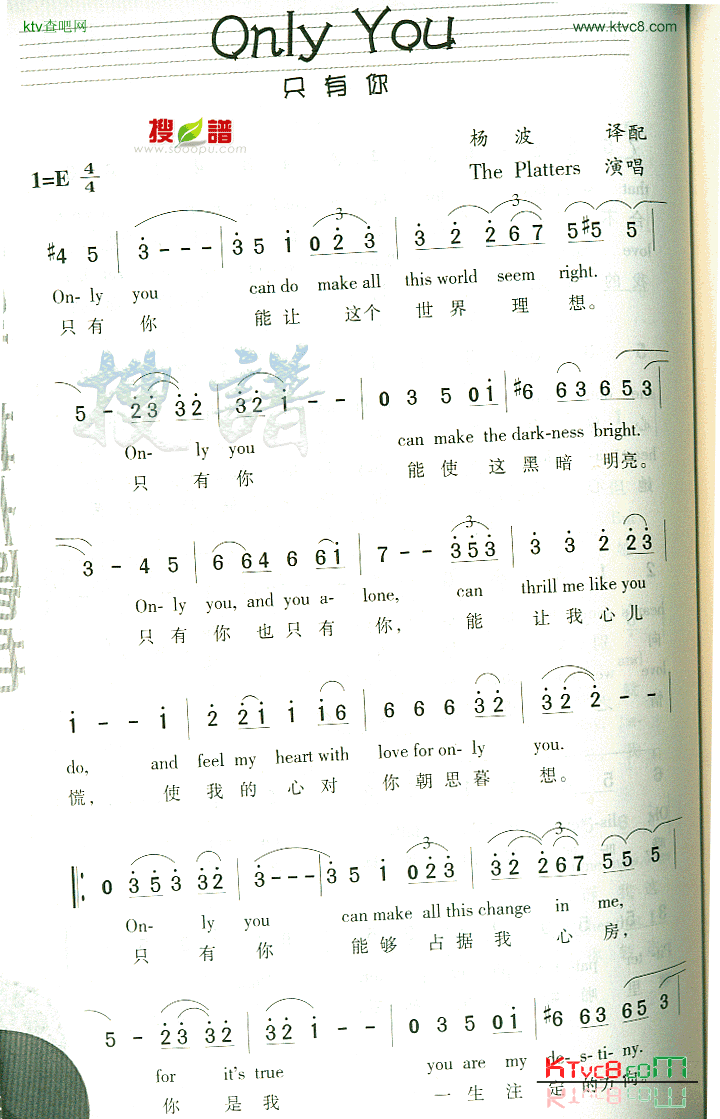 ktv查吧网
www.ktvc8.com
Only You
只有你
搜谱
www.sooopu.com
杨波 译配
The Platters 演唱
1=E 4/4
#4 5 | 3 - - - | 3 5 i 0 2 3 | 3 2 2 6 7 | 5 #5 5 5
On- ly you can do make all this world seem right.
只有你 能让 这个 世界 理想。
5 - 2 3 3 2 | 3 2 i - - | 0 3 5 0 i | #6 6 3 6 5 3
On- ly you can make the dark-ness bright.
只有你 能使这黑暗明亮。
3 - 4 5 | 6 6 4 6 6 i | 7 - - 3 5 3 | 3 3 2 2 3
On- ly you, and you a- lone, can thrill me like you
只有你也只有你, 能让我心儿
i - - i | 2 2 i i i 6 | 6 6 6 3 2 | 3 2 2 - -
do, and feel my heart with love for on- ly you.
慌, 使我的心对你朝思暮想。
0 3 5 3 3 2 | 3 - - - | 3 5 i 0 2 3 | 3 2 2 6 7 | 5 5 5
On- ly you can make all this change in me,
只有你 能够占据我心房,
5 - 2 3 3 2 | 3 2 i - - | 0 3 5 0 i | #6 6 3 6 5 3
for it's true you are my de- s- ti- ny.
你是我 一生注定的方向。
KTvc8.com